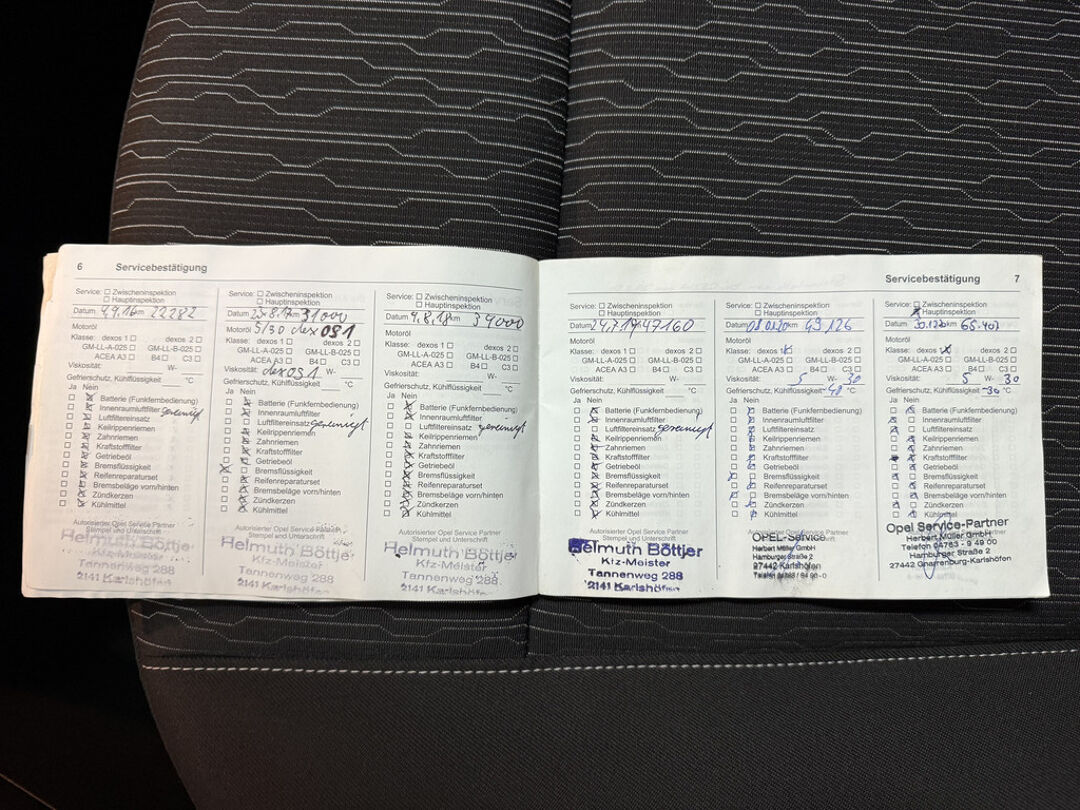 6 Servicebestätigung
Service: Zwischeninspektion
Hauptinspektion
Datum 4.9.16 km 22282
Motoröl
Klasse: dexos 1 dexos 2
GM-LL-A-025 GM-LL-B-025
ACEA A3 B4 C3
Viskosität: W-
Gefrierschutz, Kühlflüssigkeit °C
Ja Nein
Batterie (Funkfernbedienung)
Innenraumluftfilter
Luftfiltereinsatz gereinigt
Keilrippenriemen
Zahnriemen
Kraftstofffilter
Getriebeöl
Bremsflüssigkeit
Reifenreparaturset
Bremsbeläge vorn/hinten
Zündkerzen
Kühlmittel
Autorisierter Opel Service Partner
Stempel und Unterschrift
Helmuth Böttjer
Kfz-Meister
Tannenweg 288
2141 Karlshöfen
Service: Zwischeninspektion
Hauptinspektion
Datum 23.8.17 km 31000
Motoröl 5/30 dexos1
Klasse: dexos 1 dexos 2
GM-LL-A-025 GM-LL-B-025
ACEA A3 B4 C3
Viskosität: dexos1 W-
Gefrierschutz, Kühlflüssigkeit °C
Ja Nein
Batterie (Funkfernbedienung)
Innenraumluftfilter
Luftfiltereinsatz gereinigt
Keilrippenriemen
Zahnriemen
Kraftstofffilter
Getriebeöl
Bremsflüssigkeit
Reifenreparaturset
Bremsbeläge vorn/hinten
Zündkerzen
Kühlmittel
Autorisierter Opel Service Partner
Stempel und Unterschrift
Helmuth Böttjer
Kfz-Meister
Tannenweg 288
2141 Karlshöfen
Service: Zwischeninspektion
Hauptinspektion
Datum 9.8.18 km 39000
Motoröl
Klasse: dexos 1 dexos 2
GM-LL-A-025 GM-LL-B-025
ACEA A3 B4 C3
Viskosität: W-
Gefrierschutz, Kühlflüssigkeit °C
Ja Nein
Batterie (Funkfernbedienung)
Innenraumluftfilter
Luftfiltereinsatz gereinigt
Keilrippenriemen
Zahnriemen
Kraftstofffilter
Getriebeöl
Bremsflüssigkeit
Reifenreparaturset
Bremsbeläge vorn/hinten
Zündkerzen
Kühlmittel
Autorisierter Opel Service Partner
Stempel und Unterschrift
Helmuth Böttjer
Kfz-Meister
Tannenweg 288
2141 Karlshöfen
Servicebestätigung 7
Service: Zwischeninspektion
Hauptinspektion
Datum 24.7.19 47160
Motoröl
Klasse: dexos 1 dexos 2
GM-LL-A-025 GM-LL-B-025
ACEA A3 B4 C3
Viskosität: W-
Gefrierschutz, Kühlflüssigkeit °C
Ja Nein
Batterie (Funkfernbedienung)
Innenraumluftfilter
Luftfiltereinsatz gereinigt
Keilrippenriemen
Zahnriemen
Kraftstofffilter
Getriebeöl
Bremsflüssigkeit
Reifenreparaturset
Bremsbeläge vorn/hinten
Zündkerzen
Kühlmittel
Autorisierter Opel Service Partner
Stempel und Unterschrift
Helmuth Böttjer
Kfz-Meister
Tannenweg 288
2141 Karlshöfen
Service: Zwischeninspektion
Hauptinspektion
Datum km 49126
Motoröl
Klasse: dexos 1 dexos 2
GM-LL-A-025 GM-LL-B-025
ACEA A3 B4 C3
Viskosität: 5 W- 30
Gefrierschutz, Kühlflüssigkeit -48 °C
Ja Nein
Batterie (Funkfernbedienung)
Innenraumluftfilter
Luftfiltereinsatz
Keilrippenriemen
Zahnriemen
Kraftstofffilter
Getriebeöl
Bremsflüssigkeit
Reifenreparaturset
Bremsbeläge vorn/hinten
Zündkerzen
Kühlmittel
OPEL-Service
Herbert Müller GmbH
Hamburger Straße 2
27442 Karlshöfen
Service: Zwischeninspektion
Hauptinspektion
Datum km 65.407
Motoröl
Klasse: dexos 1 dexos 2
GM-LL-A-025 GM-LL-B-025
ACEA A3 B4 C3
Viskosität: 5 W- 30
Gefrierschutz, Kühlflüssigkeit -30 °C
Ja Nein
Batterie (Funkfernbedienung)
Innenraumluftfilter
Luftfiltereinsatz
Keilrippenriemen
Zahnriemen
Kraftstofffilter
Getriebeöl
Bremsflüssigkeit
Reifenreparaturset
Bremsbeläge vorn/hinten
Zündkerzen
Kühlmittel
Opel Service-Partner
Herbert Müller GmbH
Telefon 04763 - 9 49 00
Hamburger Straße 2
27442 Gnarrenburg-Karlshöfen